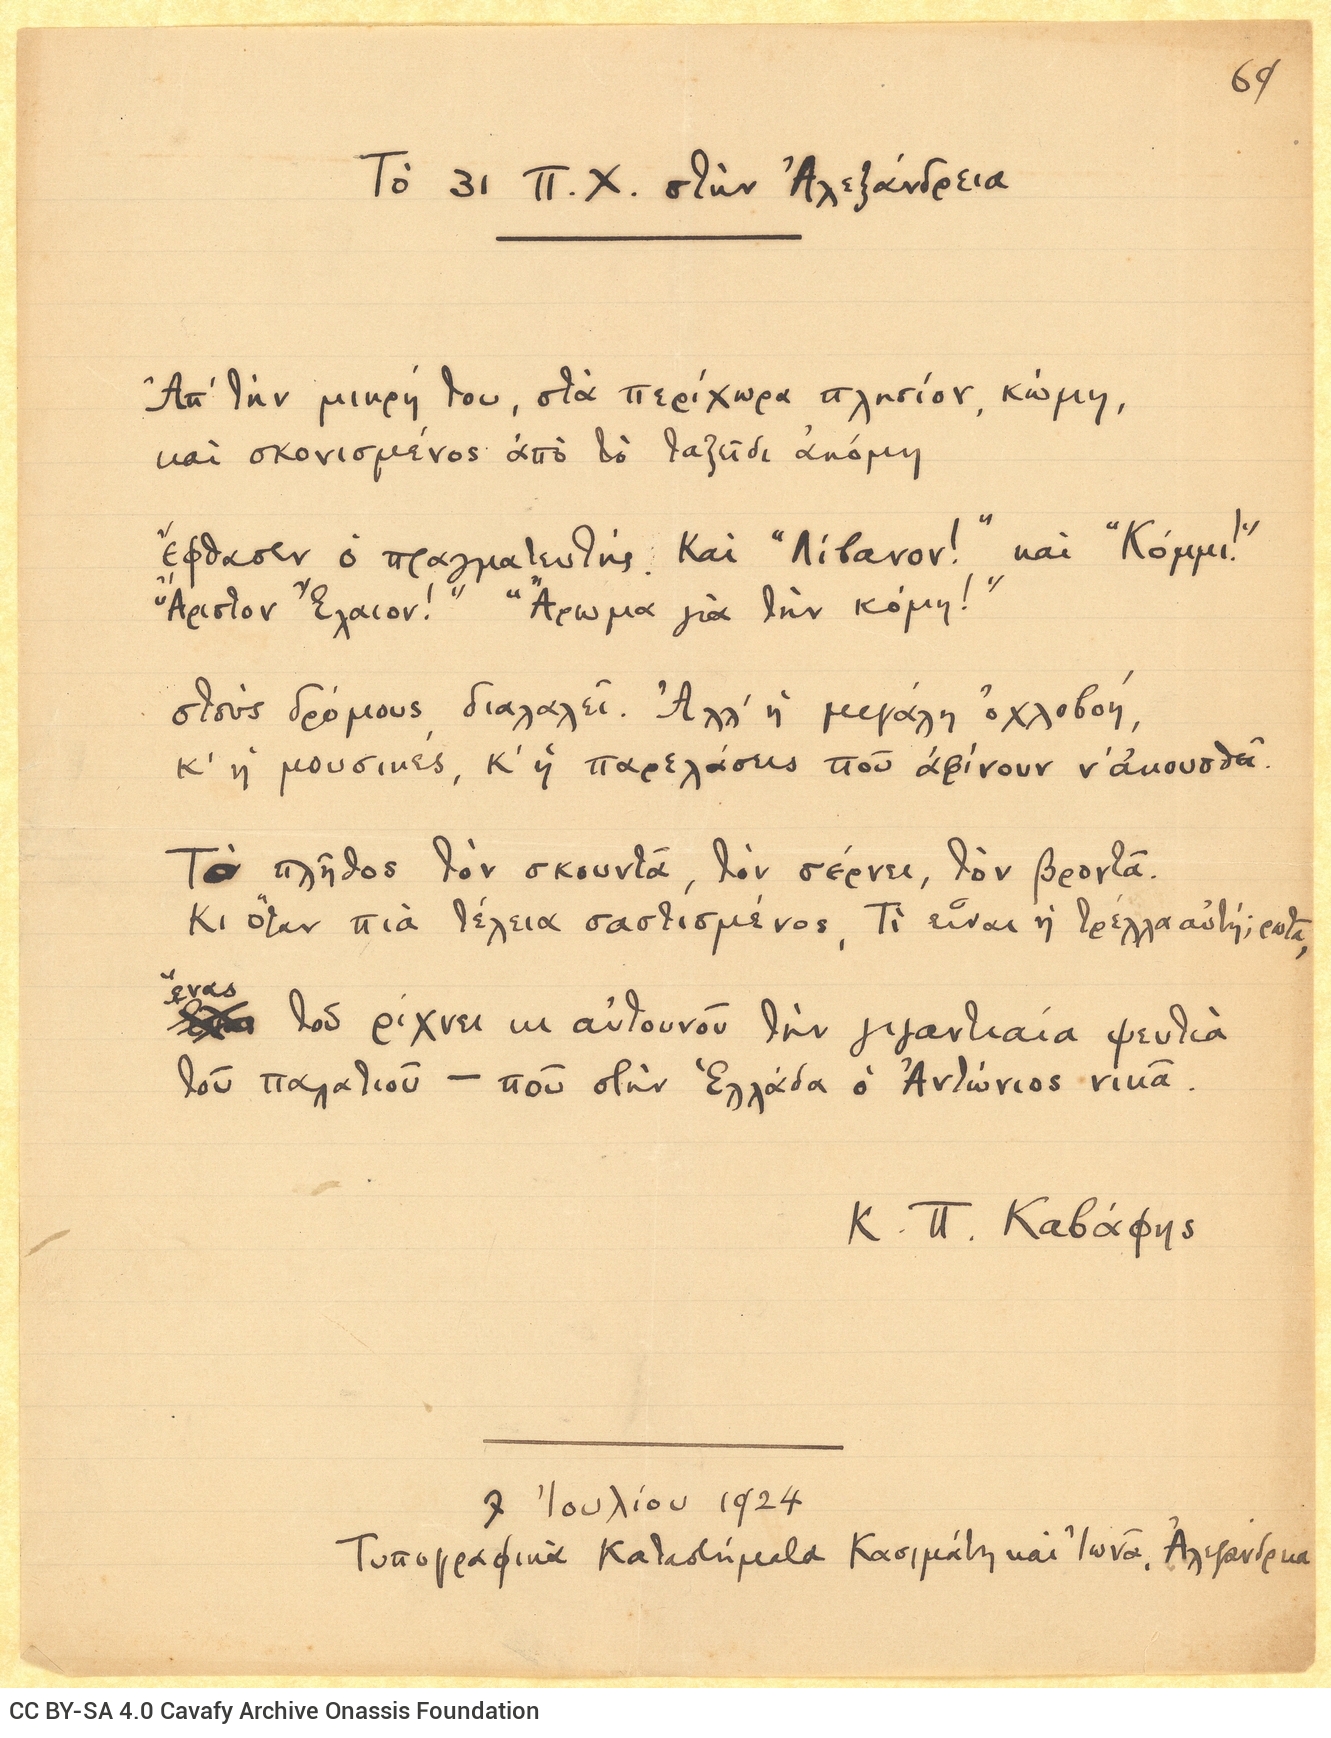 69
Τὸ 31 Π.Χ. στὴν Ἀλεξάνδρεια
Ἀπ' τὴν μικρή του, στὰ περίχωρα πλησίον, κώμη,
καὶ σκονισμένος ἀπὸ τὸ ταξεῖδι ἀκόμη
ἔφθασεν ὁ πραγματευτής. Καὶ “Λίβανον!” καὶ “Κόμμι!”
“Ἄριστον Ἔλαιον!” “Ἄρωμα γιὰ τὴν κόμη!”
στοὺς δρόμους διαλαλεῖ. Ἀλλ' ἡ μεγάλη ὀχλοβοή,
κ' ἡ μουσικές, κ' ἡ παρελάσεις ποῦ ἀφίνουν ν' ἀκουσθεῖ.
Τὸ πλῆθος τὸν σκουντᾶ, τὸν σέρνει, τὸν βροντᾶ.
Κι ὅταν πιὰ τέλεια σαστισμένος, Τὶ εἶναι ἡ τρέλλα αὐτή; ρωτᾶ,
ἕνας
τοῦ ρίχνει κι αὐτουνοῦ τὴν γιγαντιαία ψευτιὰ
τοῦ παλατιοῦ — ποῦ στὴν Ἑλλάδα ὁ Ἀντώνιος νικᾶ.
Κ. Π. Καβάφης
7 Ἰουλίου 1924
Τυπογραφικὰ Καταστήματα Κασιμάτη καὶ Ἰωνᾶ, Ἀλεξάνδρεια
CC BY-SA 4.0 Cavafy Archive Onassis Foundation